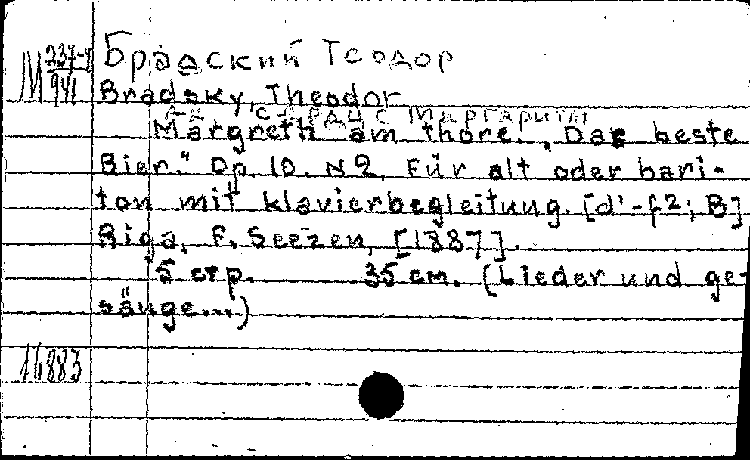 М 237-4/941
Брадский Теодор
Bradsky, Theodor
Margreth am thore. „Das beste
Bier." Op. 10. N2. Für alt oder bari-
ton mit klavierbegleitung. [d'-f2; B]
Riga, P. Seezen, [1887].
5 стр. 35 см. (Lieder und ge-
sänge...)
16883